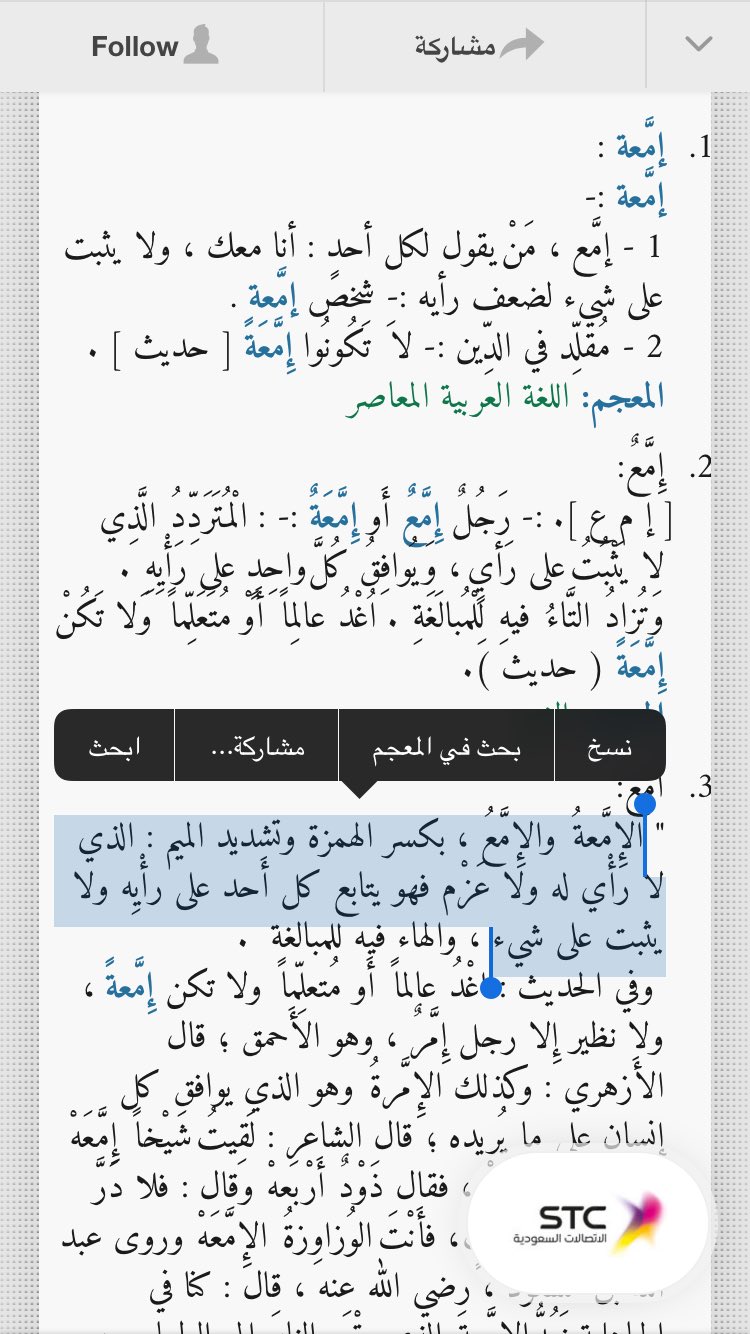 Follow
مشاركة
1. إمَّعة :
إمَّعة :-
1 - إمَّع ، مَنْ يقول لكل أحدٍ : أنا معك ، ولا يثبت
على شيء لضعف رأيه :- شخصٌ إمَّعة .
2 - مُقلِّد في الدِّين :- لاَ تَكُونُوا إِمَّعَةً [ حديث ] .
المعجم: اللغة العربية المعاصر
2. إِمَّعٌ:
[ إ م ع ]. :- رَجُلٌ إِمَّعٌ أَو إِمَّعَةٌ :- : الْمُتَرَدِّدُ الَّذِي
لا يَثْبُتُ على رَأيٍ ، وَيُوافِقُ كُلَّ واحِدٍ على رَأيِهِ .
وَتُزادُ التَّاءُ فيهِ لِلْمُبالَغَةِ . اُغْدُ عالِماً أَوْ مُتَعَلِّماً وَلا تَكُنْ
إِمَّعَةً ( حديث ).
نسخ
بحث في المعجم
مشاركة...
ابحث
3. أمع:
" الإِمَّعةُ والإِمَّعُ ، بكسر الهمزة وتشديد الميم : الذي
لا رَأْي له ولا عَزْم فهو يتابع كل أَحد على رأْيِه ولا
يثبت على شيء ، والهاء فيه للمبالغة .
وفي الحديث : اغْدُ عالماً أَو مُتعلِّماً ولا تكن إِمَّعةً ،
ولا نظير إِلا رجل إِمَّرٌ ، وهو الأَحمق ؛ قال
الأَزهري : وكذلك الإِمَّرةُ وهو الذي يوافق كل
إِنسان على ما يُريده ؛ قال الشاعر : لَقِيتُ شَيْخاً إِمَّعَهْ
، فقال ذَوْدٌ أَرْبَعهْ وقال : فلا دَرَّ
، فأَنْتَ الوُزاوِزةُ الإِمَّعَهْ وروى عبد
، رضي الله عنه ، قال : كنا في
STC
الاتصالات السعودية